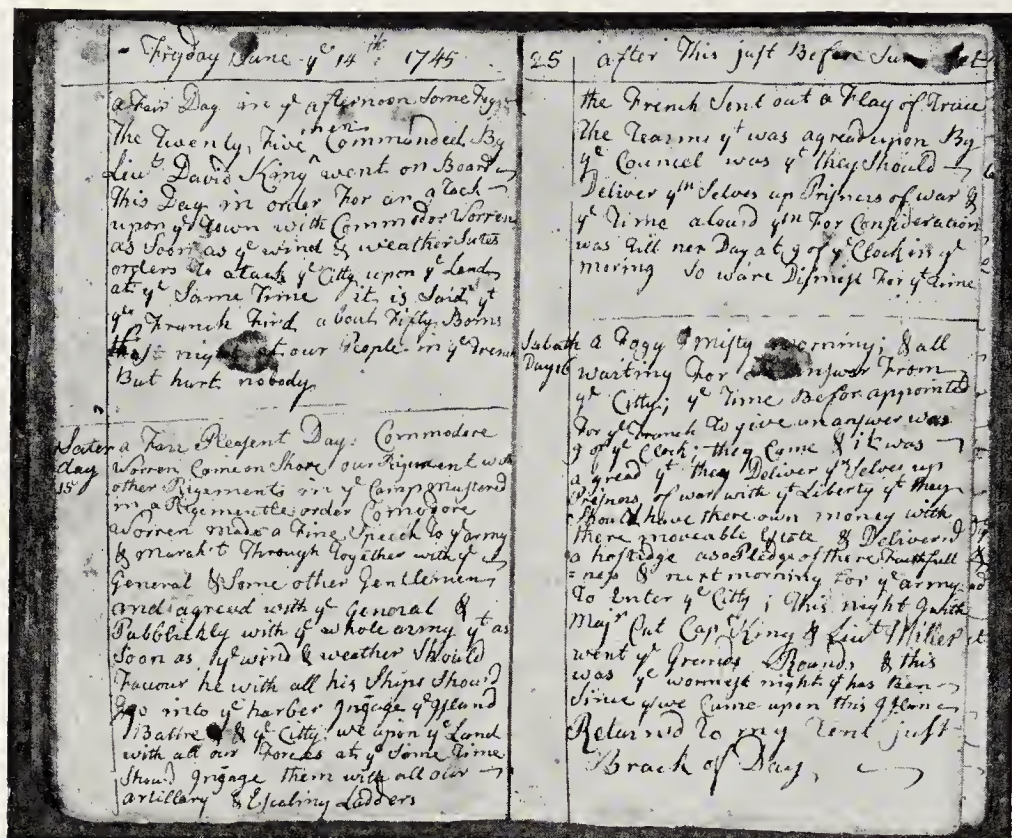 Fryday June ye 14th: 1745
a Fair Day in ye afternoon Some Fogg
The Twenty, Five men Commanded By
Liut David King went on Board
This Day in order For an atack
upon ye Town with Commodor Worren
as Soon as ye wind & weather Sutes
orders to atack ye Citty upon ye Land
at ye Same Time it is Said yt
ye Franch Fird about Fifty Boms
that night at our People in ye Trench
But hurt nobody
Sater
day
15
a Fare Pleasent Day: Commodore
Worren Came on Shore our Rigement with
other Rigements in ye Camp mustered
in a Rigementle order Comodore
Worren made a Fine Speech To ye army
& marcht Through Together with ye
General & Some other Gentlemen
and agread with ye General &
Pubblickly with ye whole army yt as
Soon as ye wind & weather Should
Favour he with all his Ships Should
Go into ye harber Ingage ye Island
Battre & ye Citty: we upon ye Land
with all our Forces at ye Same Time
Should Ingage them with all our
artillery & Escaling Ladders
25 after This just Before Sun Set
the French Sent out a Flag of Truce
the Tearms yt was agread upon By
ye Councel was yt they Should
Deliver ym Selves up Prisners of war &
ye Time aloud ym For Consideration
was till nex Day at 9 of ye Clock in ye
morning So ware Dismist For ye time
Sabath
Day 16
a Fogy & misty morning; & all
waiting For answer From
ye Citty; ye Time Befor appointed
For ye Franch To give an answer was
9 of ye Clock; they Came & it was
agread yt they Deliver ym Selves up
Prisners of war with yt Liberty yt they
Should have there own money with
there moveable Estate & Deliverd
a hostidge as a Pledge of there Faithfull
=ness & next morning For ye army
To Enter ye Citty; This night I with
Majr Cap King & Liut Miller
went ye Grands Rounds & this
was ye wormest night yt has Been
Since we Came upon this Island
Returnd To my Tent just
Brack of Day,